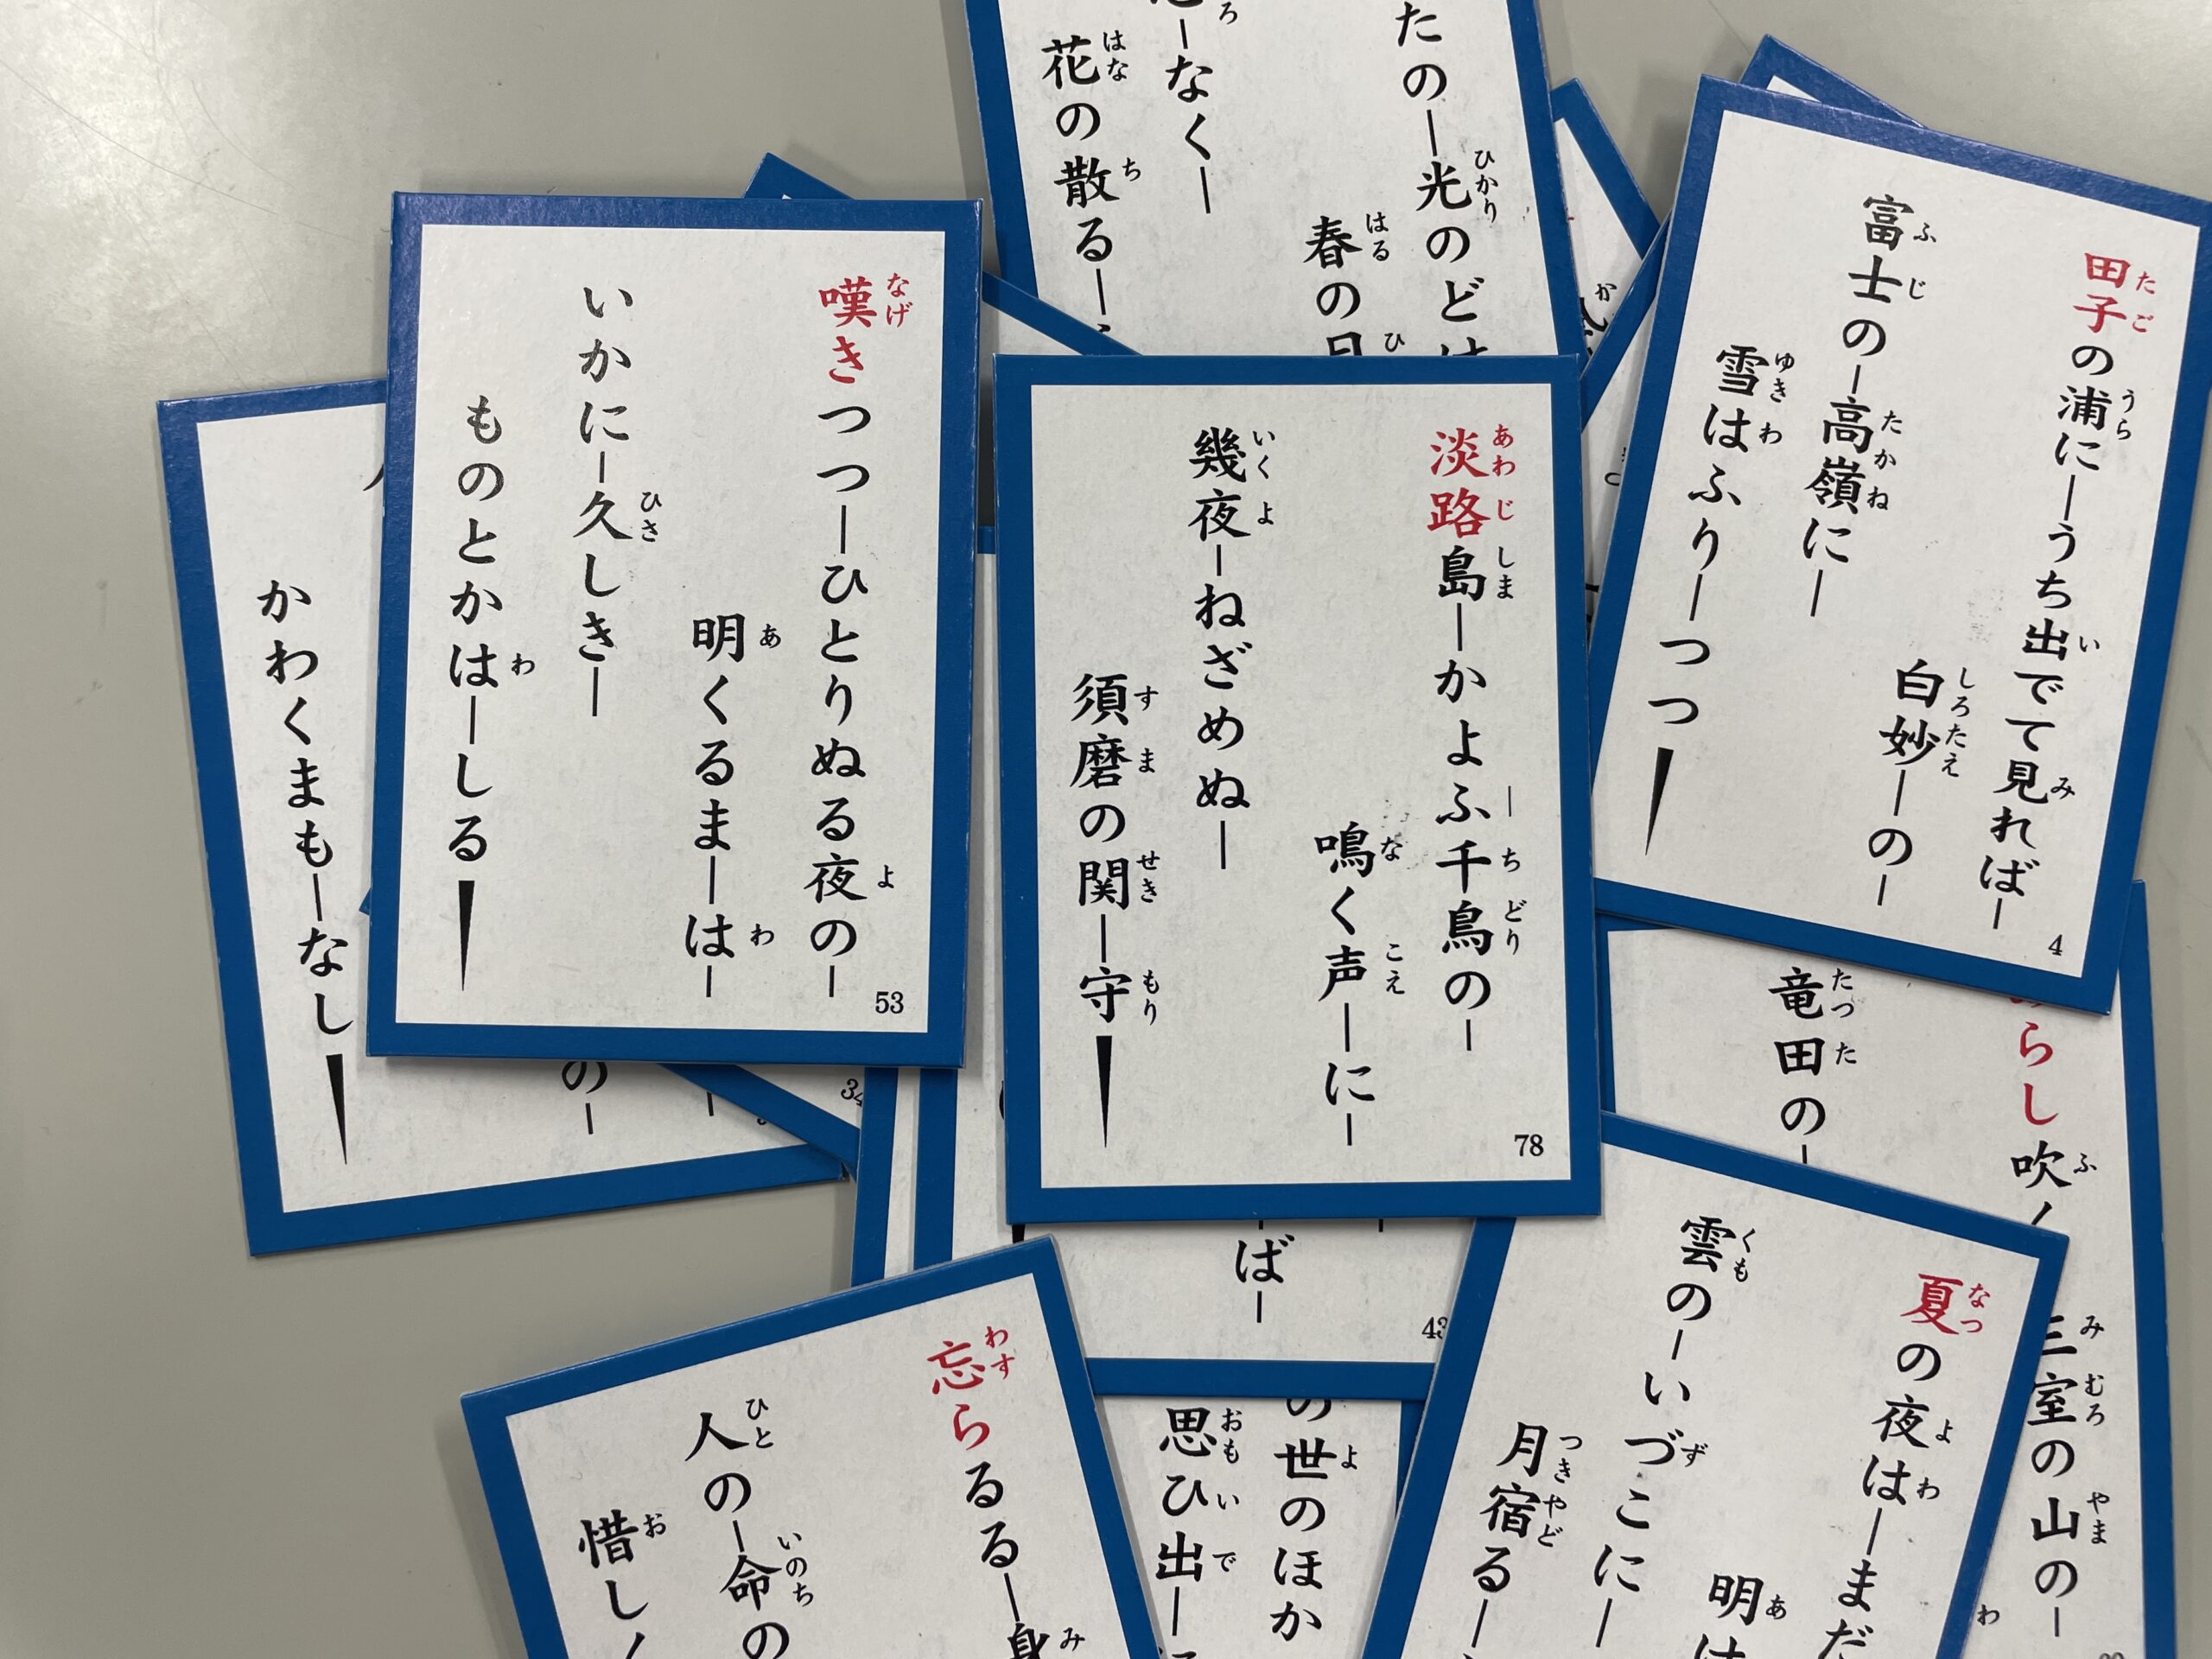 たの―光のどけ
春の日
なく―
花の散る―
田子の浦に―うち出でて見れば―
白妙―の―
富士の―高嶺に―
雪はふり―つつ
4
嘆きつつ―ひとりぬる夜の―
明くるま―は―
いかに―久しき―
ものとかは―しる
53
淡路島―かよふ―千鳥の―
鳴く声―に―
幾夜―ねざめぬ―
須磨の関―守
78
の―
かわくまも―なし
34
ば―
43
らし吹
三室の山の―
竜田の―
夏の夜は―まだ
明
雲の―いづこに―
月宿る―
の世のほか
思ひ出―
忘らるる―身
人の―命の
惜し